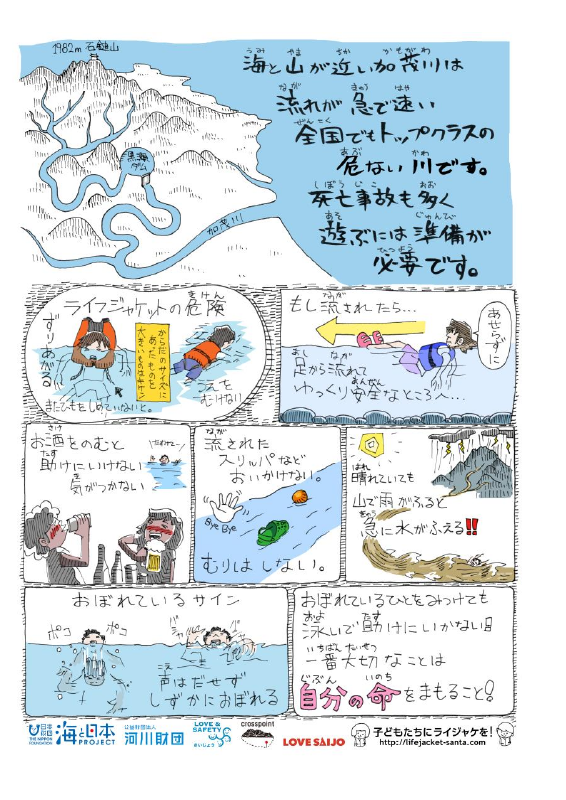 1982m 石鎚山
海と山が近い加茂川は
流れが急で速い
全国でもトップクラスの
危ない川です。
死亡事故も多く
遊ぶには準備が
必要です。
黒瀬
ダム
加茂川
ライフジャケットの危険
ずりあがる
からだのサイズに
あったものを
大きいものはキケン
うえを
むけない
またひもをしめていないと。
もし流されたら…
あせらずに
足から流れて
ゆっくり安全なところへ…
お酒をのむと
助けにいけない
気がつかない
流された
スリッパなど
おいかけない。
Bye Bye
むりはしない。
晴れていても
山で雨がふると
急に水がふえる!!
おぼれているサイン
ポコ
ポコ
声はだせず
しずかにおぼれる
おぼれているひとをみつけても
泳いで助けにいかない!!
一番大切なことは
自分の命をまもること!!
日本財団
THE NIPPON FOUNDATION
海と日本
PROJECT
公益財団法人
河川財団
LOVE &
SAFETY
さいじょう
crosspoint
LOVE SAIJO
子どもたちにライジャケを!
http://lifejacket-santa.com